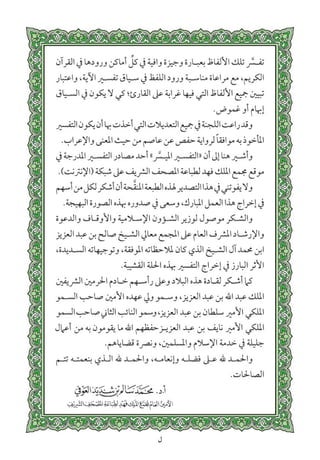 تفسَّر تلك الألفاظ بعبارة وجيزة وافية في كلِّ أماكن ورودها في القرآن
الكريم، مع مراعاة مناسبة ورود اللفظ في سياق تفسير الآية، واعتبار
تبيين جميع الألفاظ التي فيها غرابة على القارئ؛ كي لا يكون في السياق
إبهام أو غموض.
وقد راعت اللجنة في جميع التعديلات التي أخذت بها أن يكون التفسير
المأخوذ به موافقاً لرواية حفص عن عاصم من حيث المعنى والإعراب.
وأشير هنا إلى أن «التفسير الميسَّر» أحد مصادر التفسير المدرجة في
موقع مجمع الملك فهد لطباعة المصحف الشريف على شبكة (الإنترنت).
ولا يفوتني في هذا التصدير لهذه الطبعة المنقَّحة أن أشكر لكل من أسهم
في إخراج هذا العمل المبارك، وسعى في صدوره بهذه الصورة البهيجة.
والشكر موصول لوزير الشؤون الإسلامية والأوقاف والدعوة
والإرشاد المشرف العام على المجمع معالي الشيخ صالح بن عبد العزيز
ابن محمد آل الشيخ الذي كان لملاحظاته الموفقة، وتوجيهاته السديدة،
الأثر البارز في إخراج التفسير بهذه الحلة القشيبة.
كما أشكر لقادة هذه البلاد وعلى رأسهم خادم الحرمين الشريفين
الملك عبد الله بن عبد العزيز، وسمو ولي عهده الأمين صاحب السمو
الملكي الأمير سلطان بن عبد العزيز، وسمو النائب الثاني صاحب السمو
الملكي الأمير نايف بن عبد العزيز حفظهم الله ما يقومون به من أعمال
جليلة في خدمة الإسلام والمسلمين، ونصرة قضاياهم.
والحمد لله على فضله وإنعامه، والحمد لله الذي بنعمته تتم
الصالحات.
أ.د. محمد سالم بن شديد العوفي
الأمين العام لمجمع الملك فهد لطباعة المصحف الشريف
ل